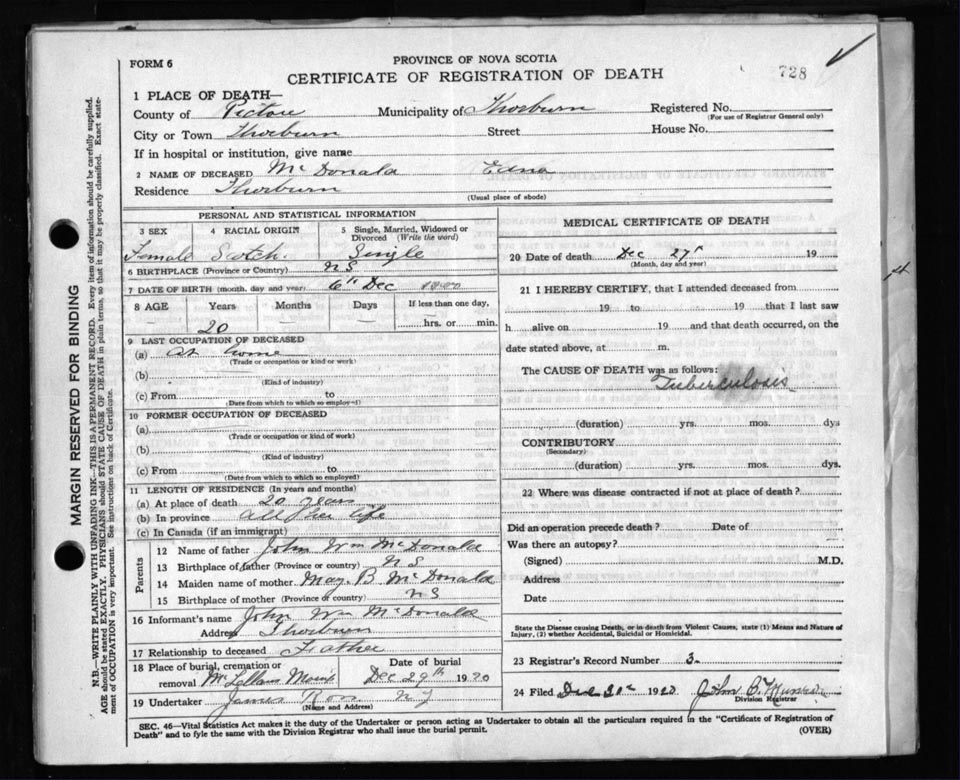 FORM 6
PROVINCE OF NOVA SCOTIA
CERTIFICATE OF REGISTRATION OF DEATH
728
1 PLACE OF DEATH—
County of Pictou Municipality of Thorburn Registered No.
(For use of Registrar General only)
City or Town Thorburn Street House No.
If in hospital or institution, give name
2 NAME OF DECEASED McDonald Edna
Residence Thorburn
(Usual place of abode)
PERSONAL AND STATISTICAL INFORMATION
3 SEX 4 RACIAL ORIGIN 5 Single, Married, Widowed or Divorced (Write the word)
Female Scotch. Single
6 BIRTHPLACE (Province or Country) N S
7 DATE OF BIRTH (month, day and year) 6" Dec 1900
8 AGE Years Months Days If less than one day,
20 hrs. or min.
9 LAST OCCUPATION OF DECEASED
(a) At home
(Trade or occupation or kind of work)
(b)
(Kind of industry)
(c) From to
(Date from which to which so employed)
10 FORMER OCCUPATION OF DECEASED
(a)
(Trade or occupation or kind of work)
(b)
(Kind of industry)
(c) From to
(Date from which to which so employed)
11 LENGTH OF RESIDENCE (In years and months)
(a) At place of death 20 years
(b) In province All her life
(c) In Canada (if an immigrant)
Parents
12 Name of father John Wm McDonald
13 Birthplace of father (Province or country) N S
14 Maiden name of mother May. B McDonald
15 Birthplace of mother (Province or country) N S
16 Informant's name John Wm McDonald
Address Thorburn
17 Relationship to deceased Father
18 Place of burial, cremation or removal Date of burial
Dec 29th 1920
19 Undertaker James Ross N G
(Name and Address)
MEDICAL CERTIFICATE OF DEATH
20 Date of death Dec 27 19
(Month, day and year)
21 I HEREBY CERTIFY, that I attended deceased from
19 to 19 that I last saw
h alive on 19 and that death occurred, on the
date stated above, at m.
The CAUSE OF DEATH was as follows:
Tuberculosis
(duration) yrs. mos. dys
CONTRIBUTORY
(Secondary)
(duration) yrs. mos. dys.
22 Where was disease contracted if not at place of death?
Did an operation precede death? Date of
Was there an autopsy?
(Signed) M.D.
Address
Date
State the Disease causing Death, or in death from Violent Causes, state (1) Means and Nature of
Injury, (2) whether Accidental, Suicidal or Homicidal.
23 Registrar's Record Number 3.
24 Filed 1920 John
Division Registrar
SEC. 46—Vital Statistics Act makes it the duty of the Undertaker or person acting as Undertaker to obtain all the particulars required in the "Certificate of Registration of
Death" and to fyle the same with the Division Registrar who shall issue the burial permit.
(OVER)
MARGIN RESERVED FOR BINDING
N.B.—WRITE PLAINLY WITH UNFADING INK—THIS IS A PERMANENT RECORD. Every item of information should be carefully supplied.
AGE should be stated EXACTLY. PHYSICIANS should STATE CAUSE OF DEATH in plain terms, so that it may be properly classified. Exact statement of OCCUPATION is very important. See instructions on back of Certificate.